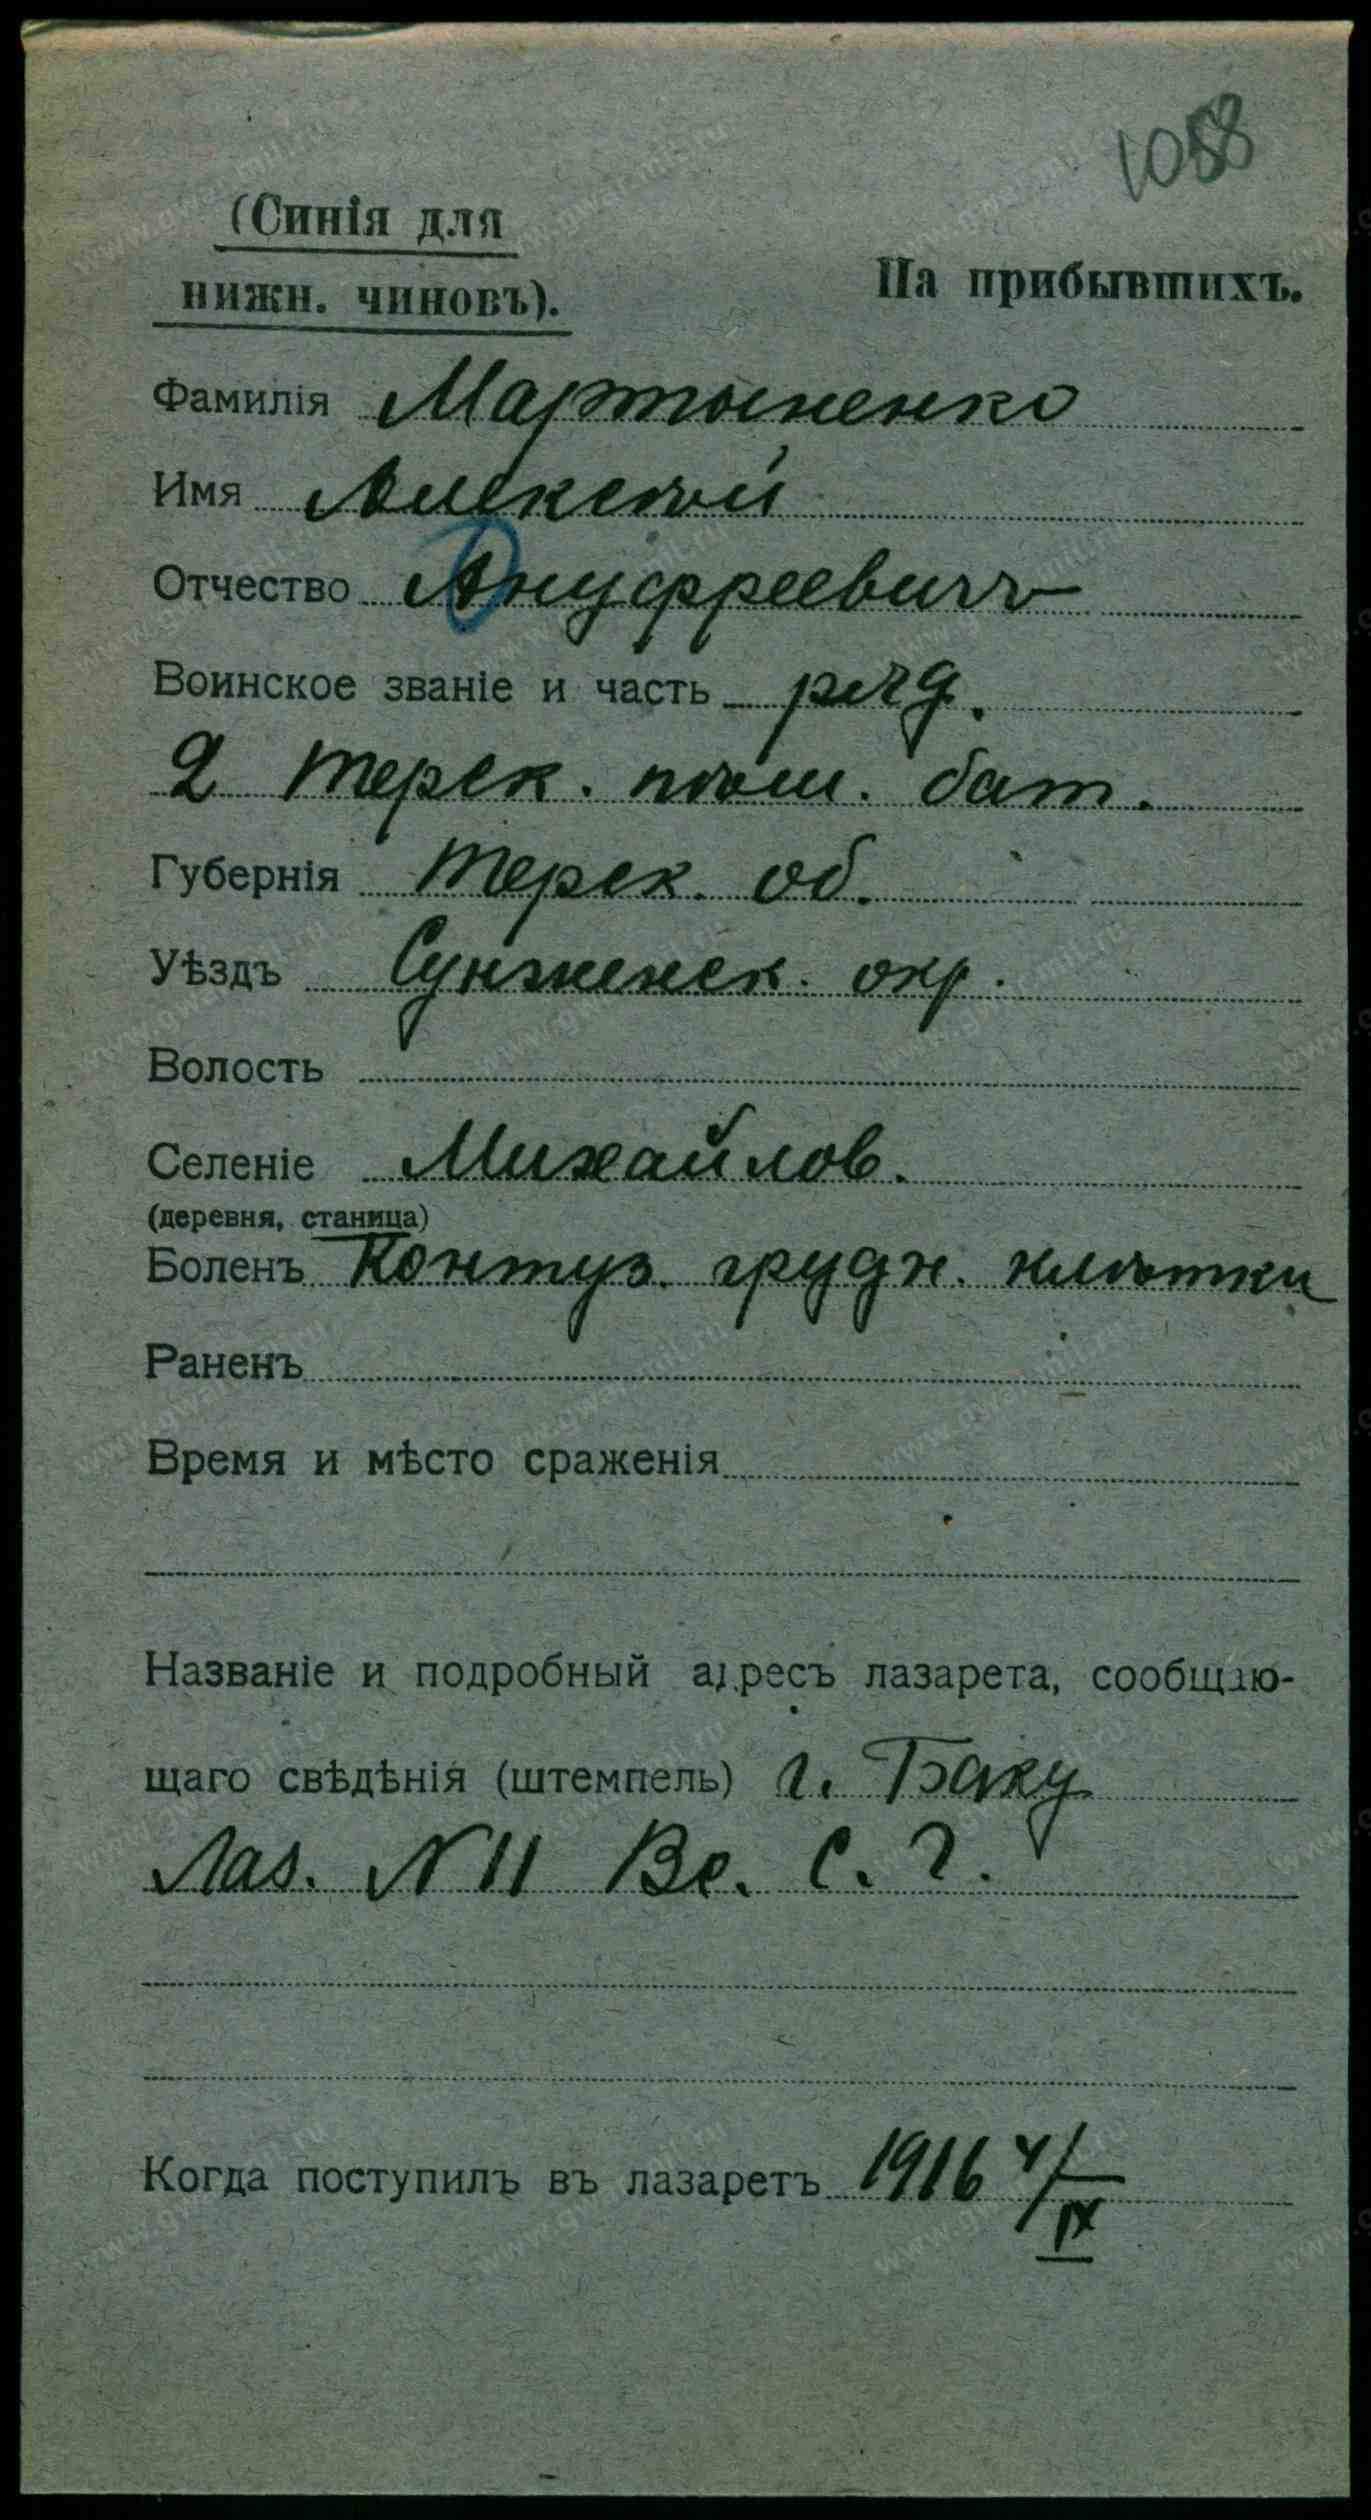 1058
(Синія для
нижн. чиновъ).
На прибывшихъ.
Фамилія Мартыненко
Имя Алексѣй
Отчество Ануфреевичъ
Воинское званіе и часть ряд.
2 Терск. пѣш. бат.
Губернія Терск. об.
Уѣздъ Сунженск. окр.
Волость
Селеніе Михайлов.
(деревня, станица)
Боленъ Контуз. грудн. клѣтки
Раненъ
Время и мѣсто сраженія
Названіе и подробный адресъ лазарета, сообщаю-
щаго свѣдѣнія (штемпель) г. Баку
Лаз. N 11 Вс. С. Г.
Когда поступилъ въ лазаретъ 1916 4/IX